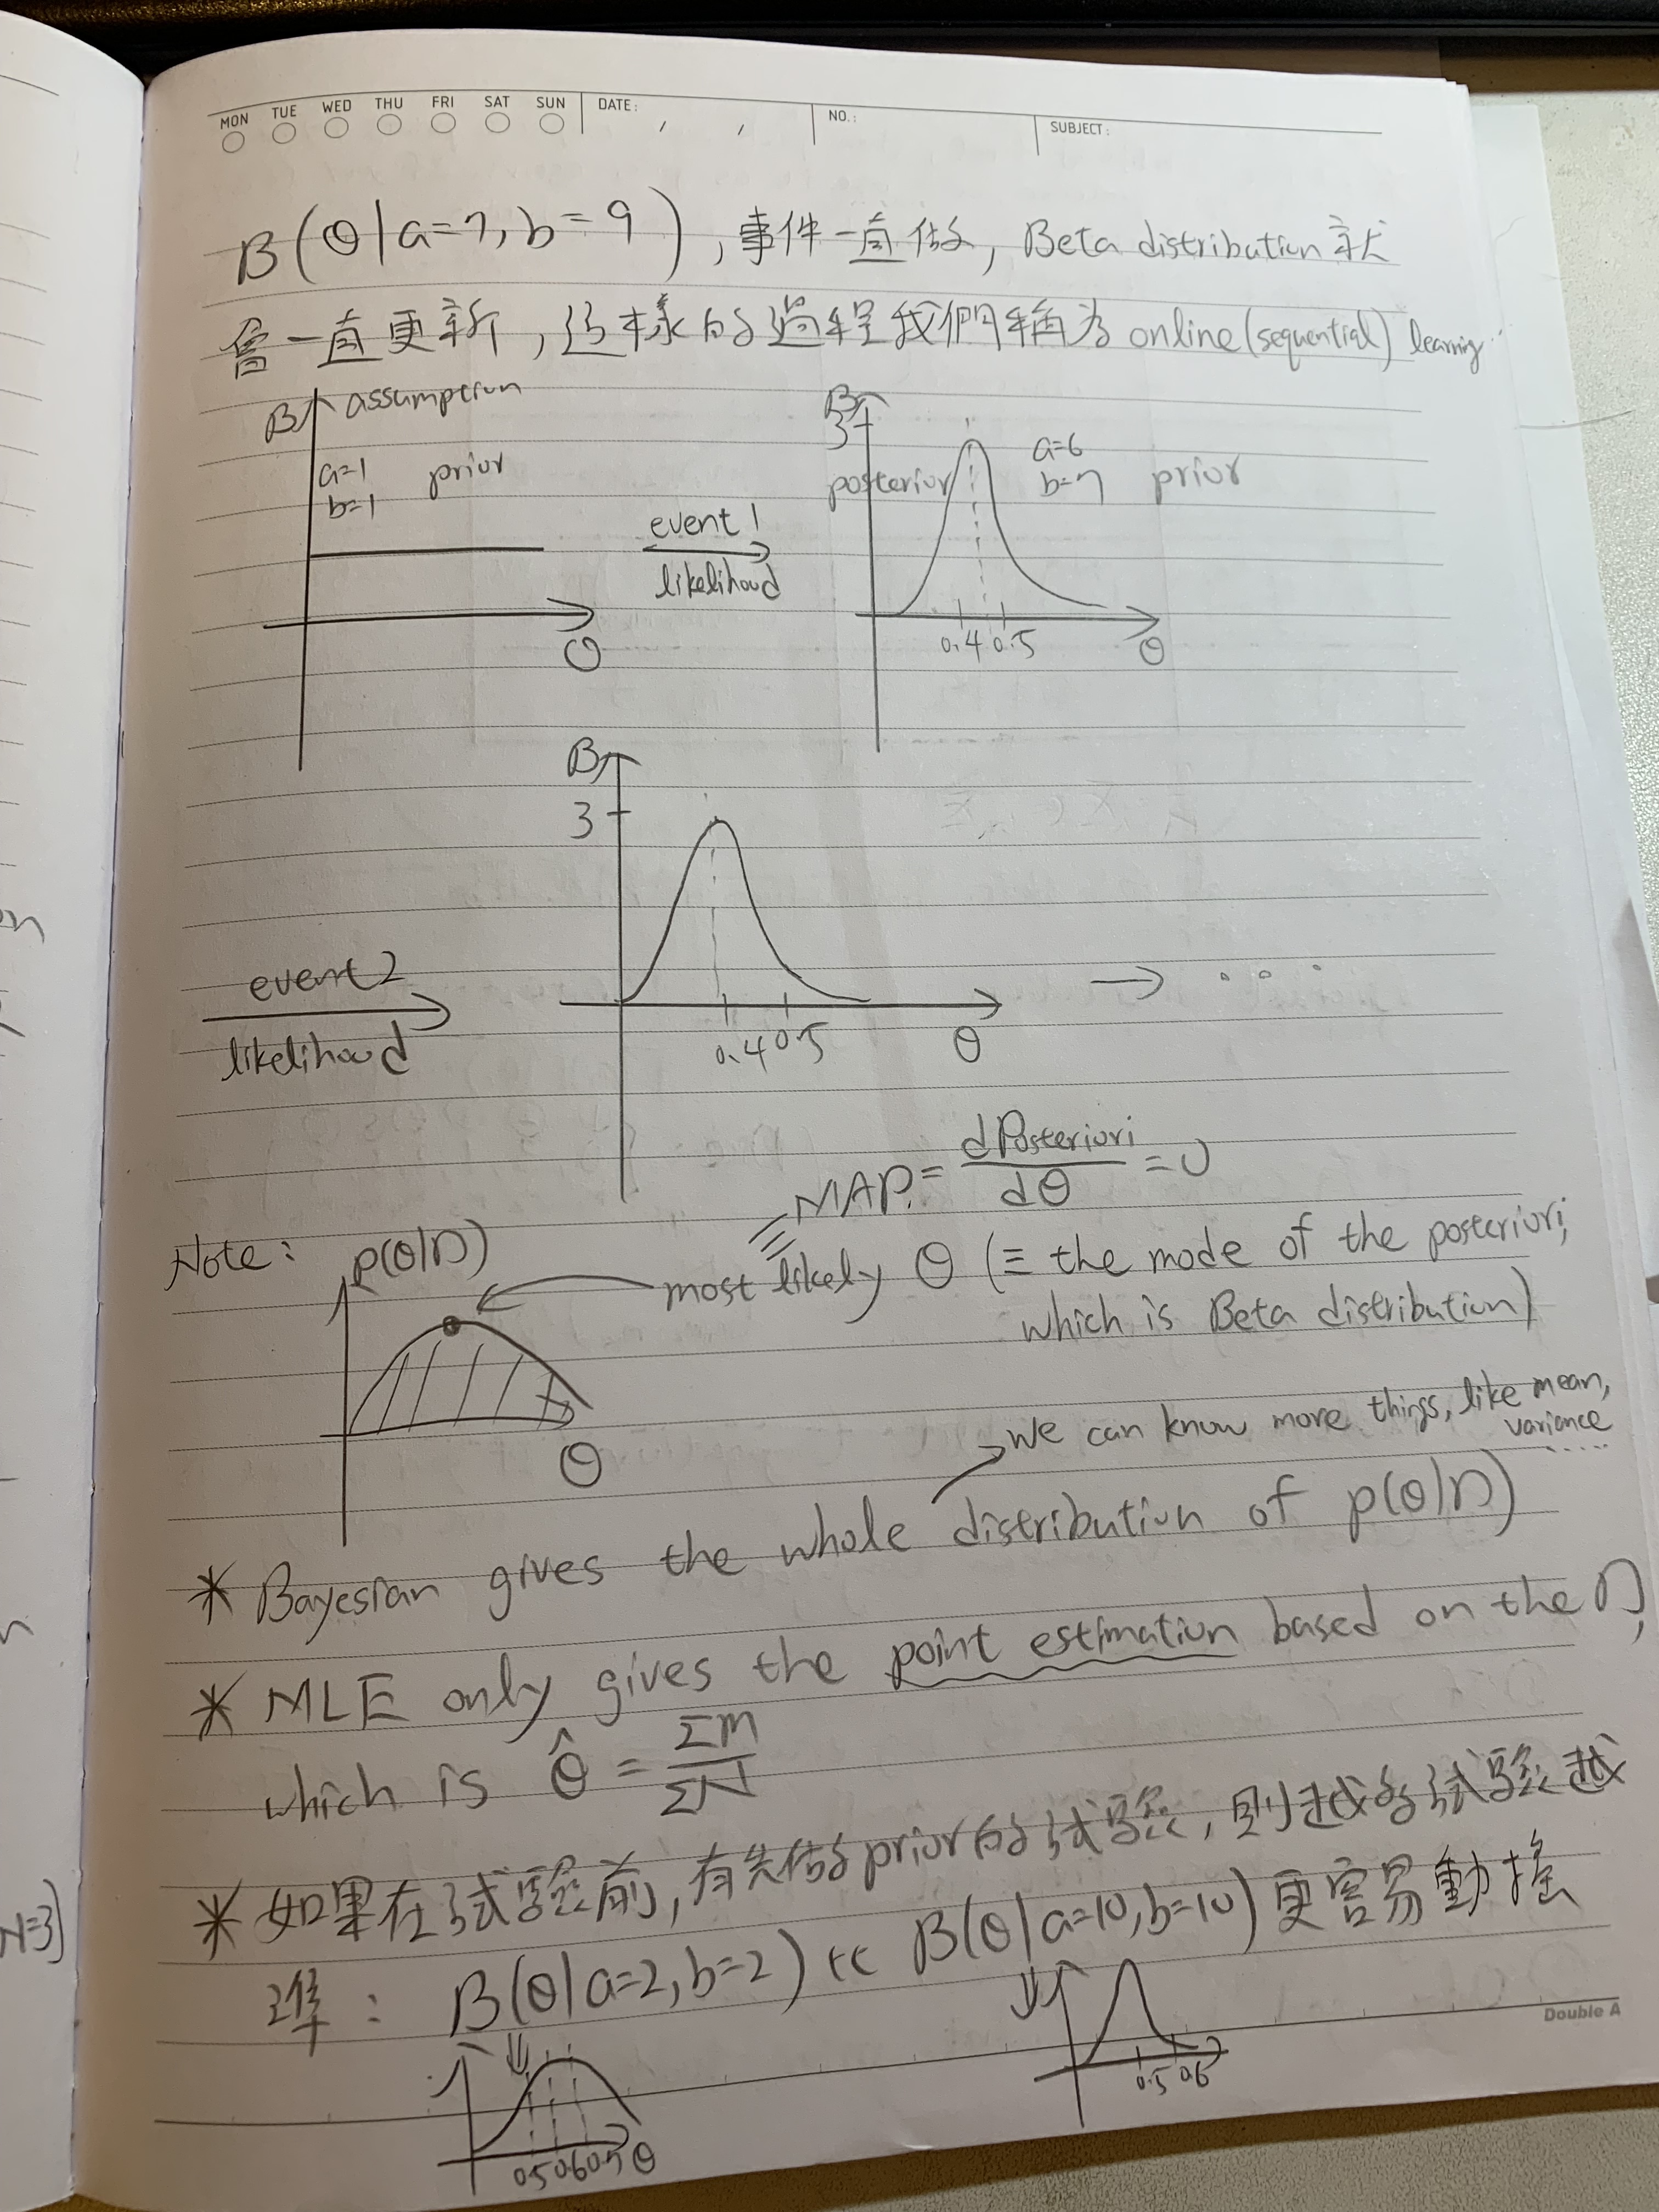 MON TUE WED THU FRI SAT SUN DATE: / / NO.: SUBJECT:
B(θ|a=7, b=9), 事件一直做, Beta distribution 就
會一直更新, 這樣的過程我們稱為 online (sequential) learning
B assumption
a=1
b=1 prior
θ
event 1
likelihood
B
3
posterior
a=6
b=7 prior
0.4 0.5 θ
B
3
event 2
likelihood
0.4 0.5 θ
→ ...
MAP = dPosteriori / dθ = 0
Note: p(θ|D)
most likely θ (≡ the mode of the posteriori,
which is Beta distribution)
θ
we can know more things, like mean,
variance ....
* Bayesian gives the whole distribution of p(θ|D)
* MLE only gives the point estimation based on the D,
which is θ̂ = ΣM / ΣN
* 如果在試驗前, 有先做 prior 的試驗, 則越多試驗越
準: B(θ|a=2, b=2) << B(θ|a=10, b=10) 更容易動搖
⇓ ⇓
0.5 0.6 0.7 θ
0.5 0.6
Double A
N=3]